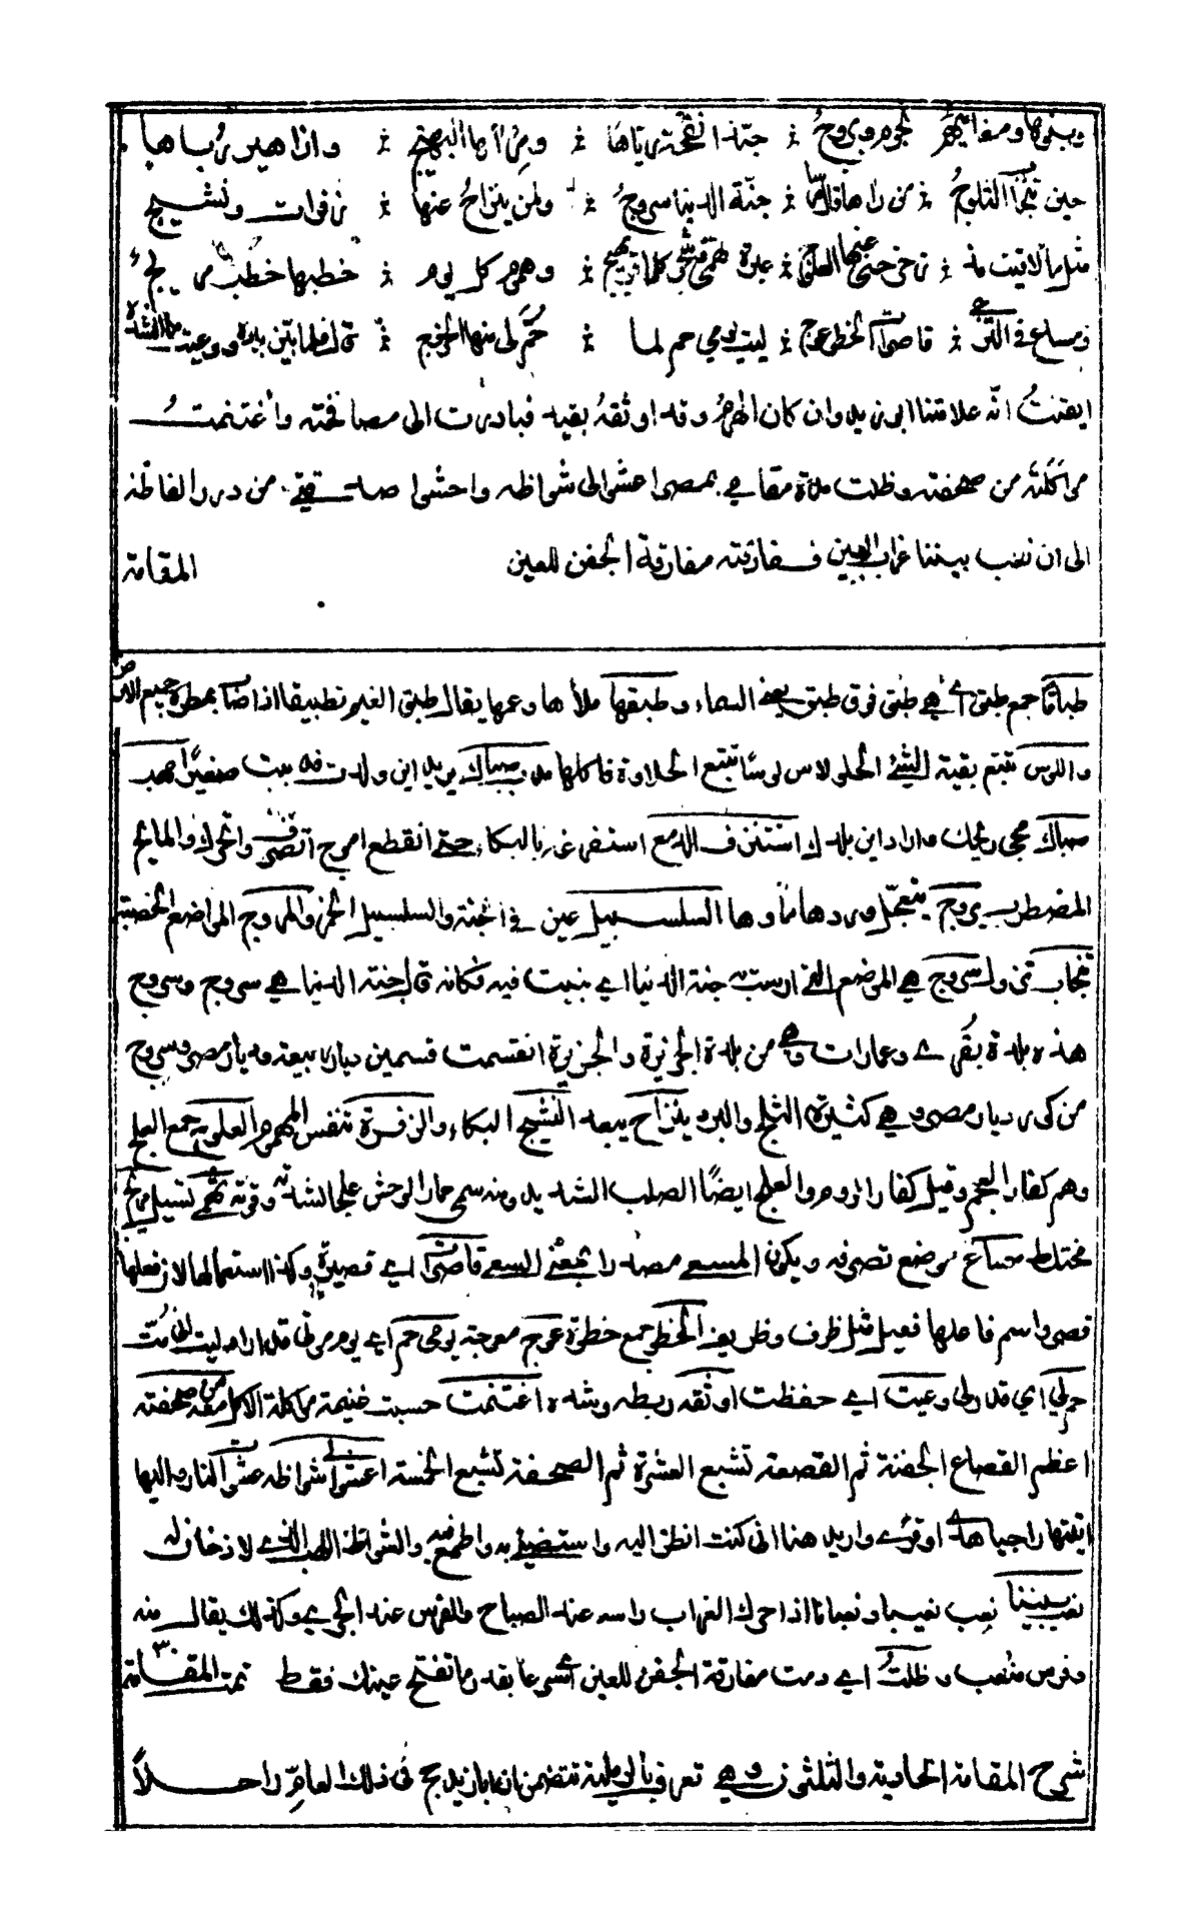 وبنوها ومغانيهم نجوم وبروج ؛ حبّذا نفحة ريّاها ؛ ومرآها البهيج ؛ وازاهير رباها
حين تنجاب الثلوج ؛ من رآها قال ؛ جنّة الدنيا سروج ؛ ولمن ينزاح عنها ؛ زفرات ونشيج
مثل ما لاقيت مذ ؛ زحزحني عنها العلوج ؛ عبرة تهمي وشجو كلما قر يهيج ؛ وهموم كل يوم ؛ خطبها خطب مريج
ومساع في الترجي ؛ قاصرات الخطو عوج ؛ ليت يومي حم لما ؛ حُمّ لي منها الخروج ؛ قال فلما بيّن بلده ووعيت ما انشده
ايقنتُ انّه علامتنا ابو زيد وان كان الهرم قد اوثقهُ بقيد فبادرت الى مصافحته واغتنمتُ
مواكلته من صحفته وظلت مدة مقامي بمصر اعشو الى شواظه واحشو صدفتي من درر الفاظه
الى ان نعب بيننا غراب البين ففارقته مفارقة الجفن للعين المقامة
طباقا جمع طبق اي هي طبق فوق طبق يعني السماء وطبقها ملأها وعمها يقال طبق الغيم تطبيقا اذا اصاب بمطره جميع الارض
واللوس تتبع بقية الشئ الحلو لاس لوسًا تتبع الحلاوة فاكلها مسبّاك يريد اين ولدت
المضطرب يروج يتعجّل ورودها ماؤها السلسبيل عين في الجنة والسلسبيل الخمر والمروج المواضع الخصبة
تنجاب تزول سروج هي الموضع الذي جنة الدنيا اي بنيت فيه فكانه قال جنة الدنيا هي سروج وسروج
هذه بلدة بقرى وعمارات وهي من بلدة الجزيرة والجزيرة انقسمت قسمين ديار ربيعة وديار مضر وسروج
من كور ديار مضر وهي كثيرة الثلج والبرد ينزاح يبعد النشيج البكاء والزفرة تنفس المهموم العلوج جمع العلج
وهم كفار العجم وقيل كفار الروم والعلج ايضًا الصلب الشديد ومنه سمي حمار الوحش علجا لشدته وقوته تهمي تسيل مريج
مختلط مساع موضع تصرفه ويكون المسعى مصدرا بمعنى السعي قاصرات اي قصيرة وكذا استعمالها لان فعلها
قصر واسم فاعلها فعيل مثل ظرف وظريف الخطو جمع خطوة عوج معوجة يومي حم اي يوم موتي قدر اراد ليتني مُتّ
حم لي اي قدر لي وعيت اي حفظت اوثقه ربطه وشده اغتنمت حسبت غنيمة مواكلة الاكل معه من صحفته
اعظم القصاع الجفنة ثم القصعة تشبع العشرة ثم الصحفة تشبع الخمسة اعشو الى شواظه عشوت النار واليها
اتيتها راجيا هدى او قرى واريد هنا اني كنت انظر اليه واستضيئ به واطمع فيه والشواظ اللهب الذي لا دخان له
نعب بيننا نعب نعيبا ونعبانا اذا حرك الغراب راسه عند الصياح والفرس عند الجري وكذلك يقال منه
وفرس منعب وظلتُ اي دمت مفارقة الجفن للعين اي سريعا بقدر ما تفتح عينك فقط تمت المقامة ٣٠
شرح المقامة الحادية والثلثون وهي تعرف بالرملية تتضمن ان ابا زيد حج في ذلك العام راجلاً